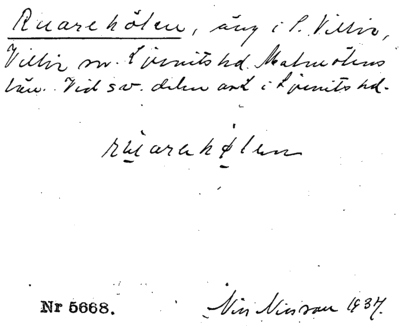 Ruarehölen, äng i S. Villie,
Villie sn. Ljunits hd. Malmöhus
län. Vid sv. delen av i Ljunits hd.
rúarehølen
Nr 5668.
Nils Nilsson 1937.